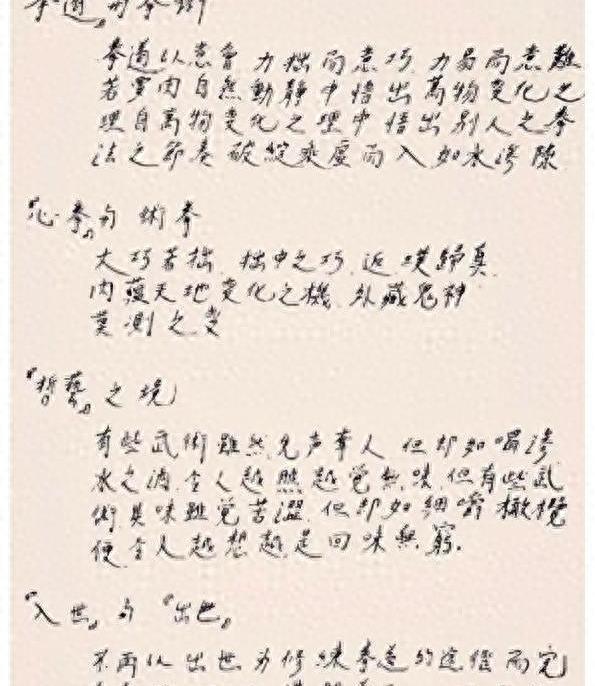 拳道以意會 力拙而意巧 力易而意難
自然動靜中悟出萬物变化之
理自萬物变化之理中悟出別人之拳
法之節奏 破綻乘虛而入 如水滲隙
『心拳』与 術拳
大巧若拙 拙中之巧 返璞歸真
內蘊天地变化之機 外藏鬼神
莫測之变
『哲藝』之境
有些武術雖然先声奪人 但却如喝滲
水之酒 令人越照越覚無味 但有些武
術其味雖覚苦澀 但却如細嚼橄欖
便令人越想越是回味無窮.
『入世』与『出世』
不再以出世为修練拳道的途徑 而完